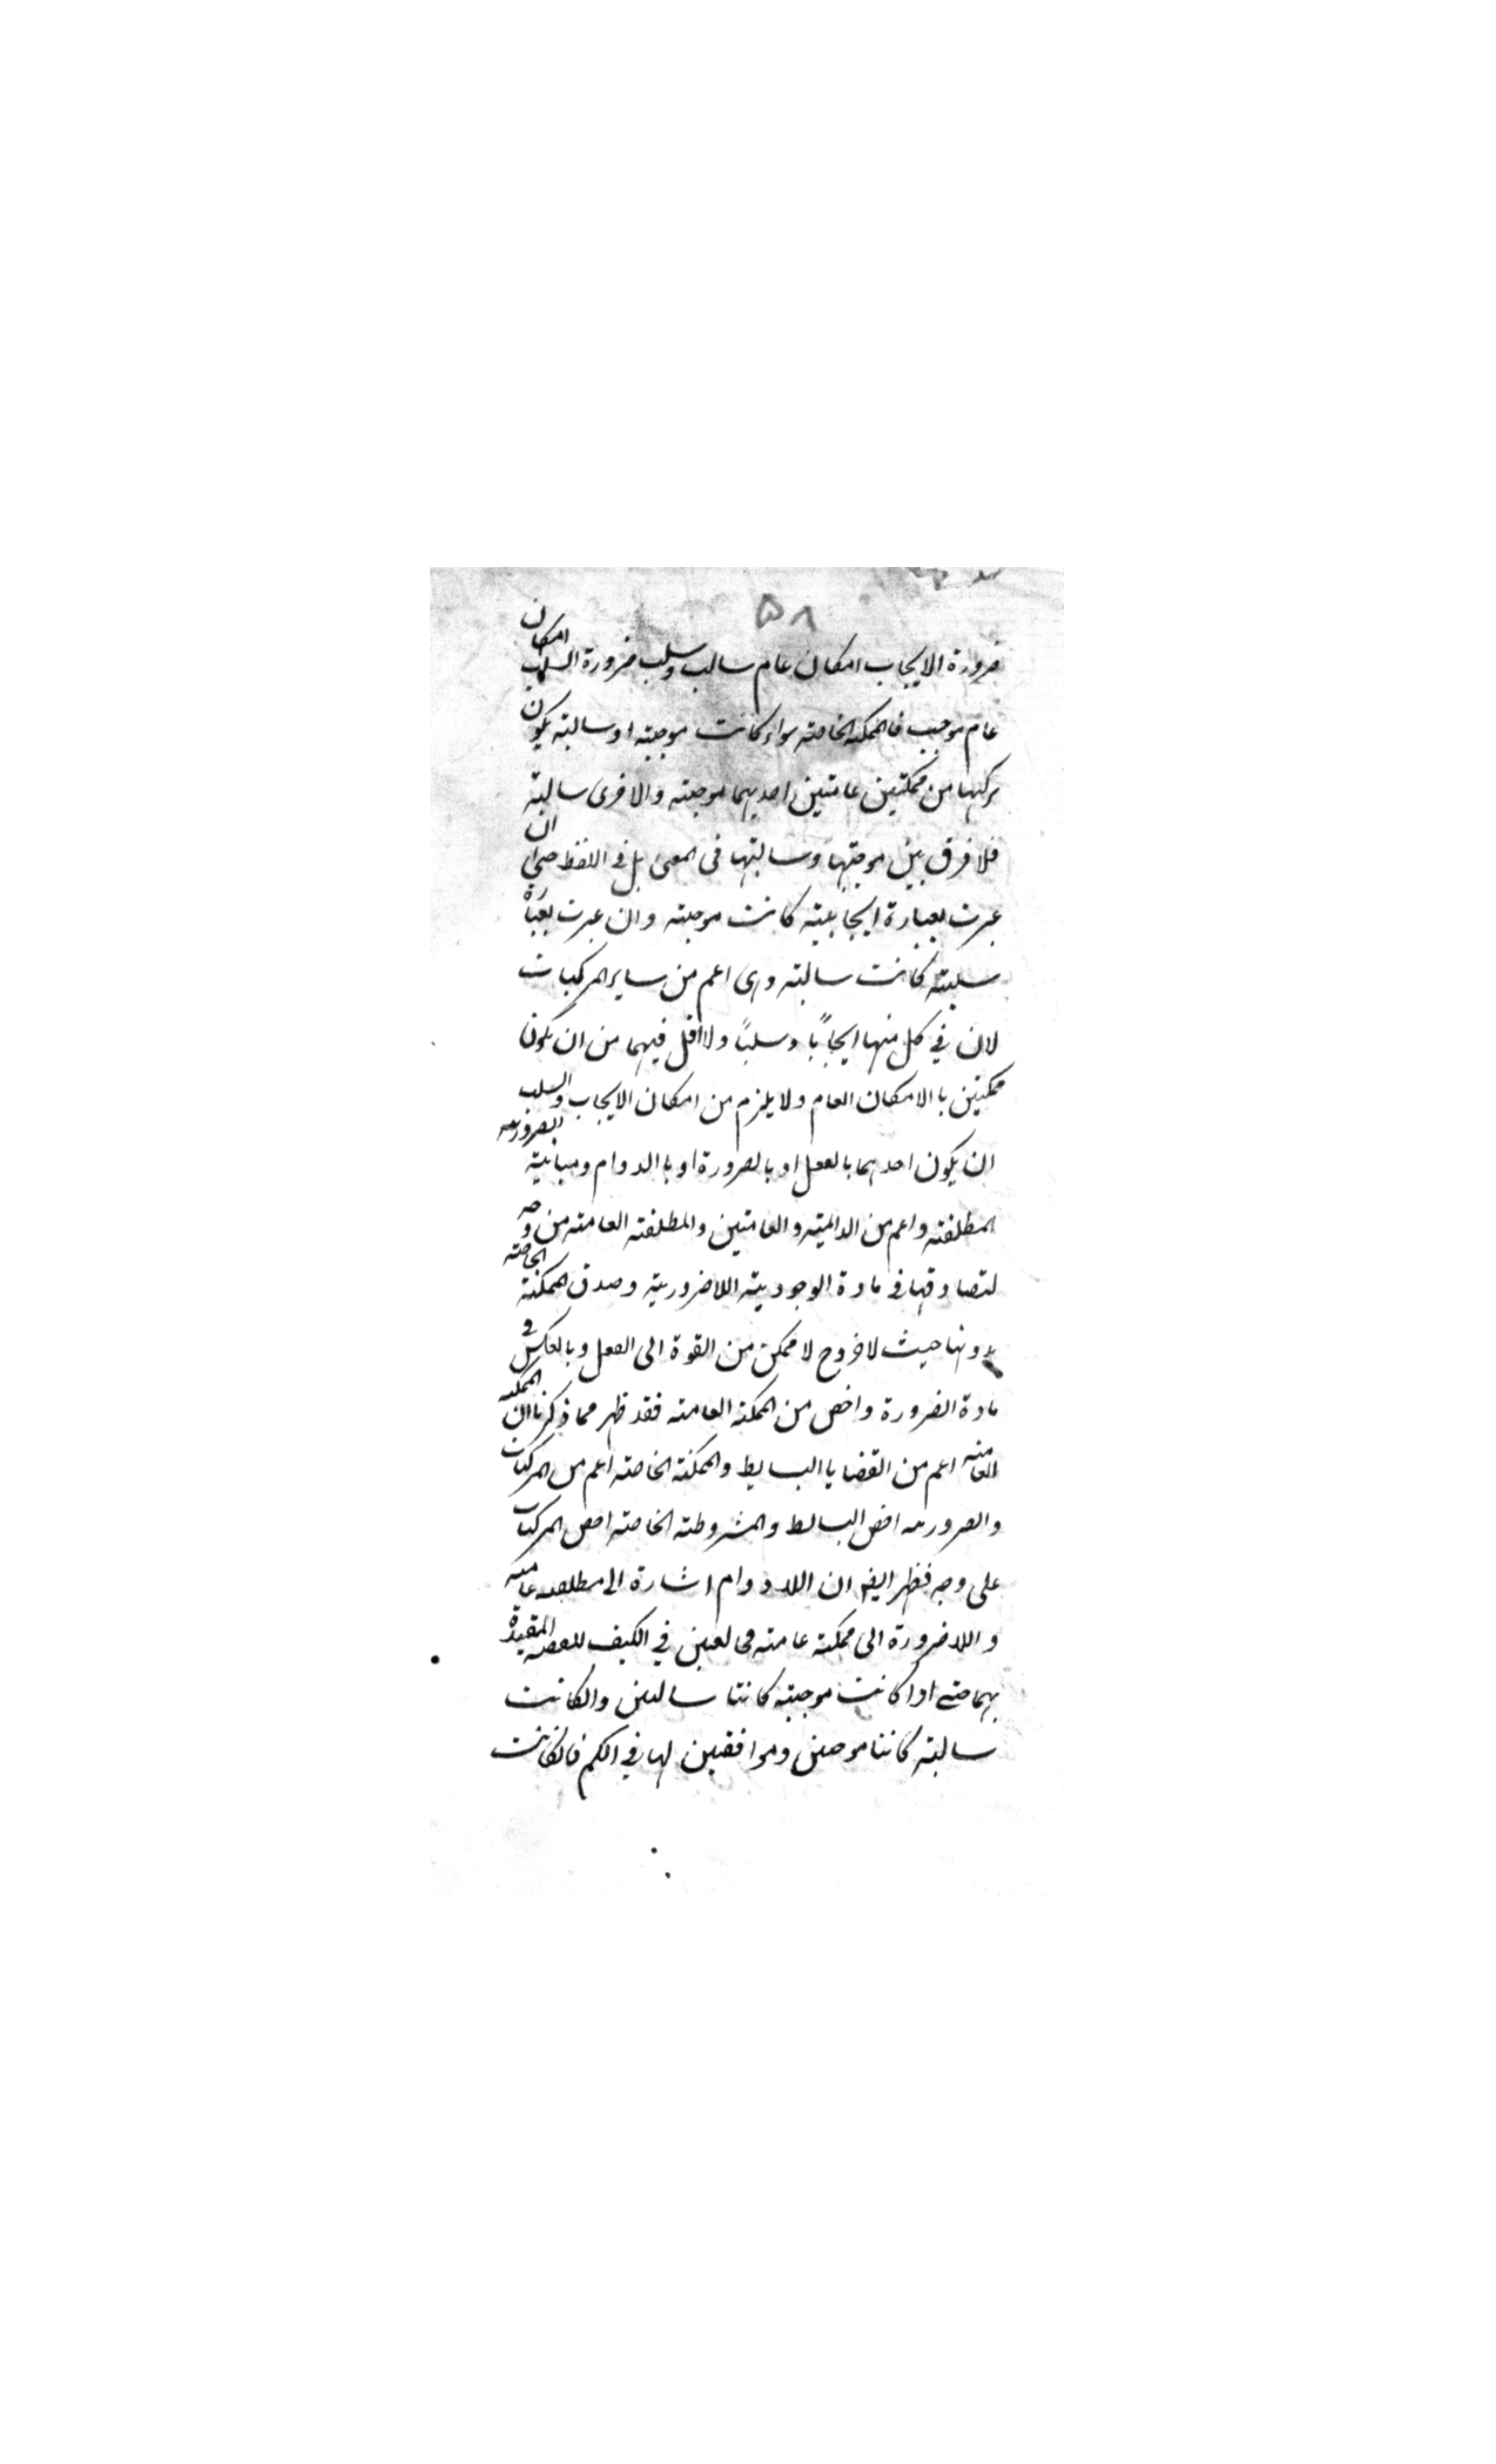 ٥٨
ضرورة الايجاب امكان عام سالب وسلب ضرورة السلب امكان
عام موجب فالممكنة الخاصة سواء كانت موجبته او سالبته يكون
تركبها من ممكنتين عامتين احديهما موجبته والاخرى سالبته
فلا فرق بين موجبتها وسالبتها فى المعنى بل فى اللفظ حتى ان
عبرت بعبارة ايجابيته كانت موجبته وان عبرت بعبارة
سلبيته كانت سالبته وهى اعم من ساير المركبات
لان في كل منها ايجابًا وسلبًا ولا اقل فيهما من ان يكون
ممكنتين با الامكان العام ولا يلزم من امكان الايجاب والسلب
ان يكون احديهما بالفعل او بالضرورة او با الدوام ومباينته الضرورية
المطلقته واعم من الدائميته والعامتين والمطلقته العامته من وجه
لتصادقها فى مادة الوجوديته اللاضروريته وصدق الممكنته الخاصته
بدونها حيث لا خروج لا ممكن من القوة الى الفعل وبالعكس فى
مادة الضرورة واخص من الممكنه العامته فقد ظهر مما ذكرنا ان الممكنه
العامته اعم من القضايا البسايط والممكنته الخاصته اعم من المركبات
والضروريه اخص البسائط والمشروطته الخاصته اخص المركبات
على وجه فظهر ايضا ان اللادوام اشارة الى مطلقه عاميه
واللاضرورة الى ممكنته عامته مخالفين في الكيف للقضيه المقيدة
بهما حتے اذا كانت موجبته كانتا سالبتين وانكانت
سالبته كانتا موجبتين وموافقين لها في الكم فانكانت